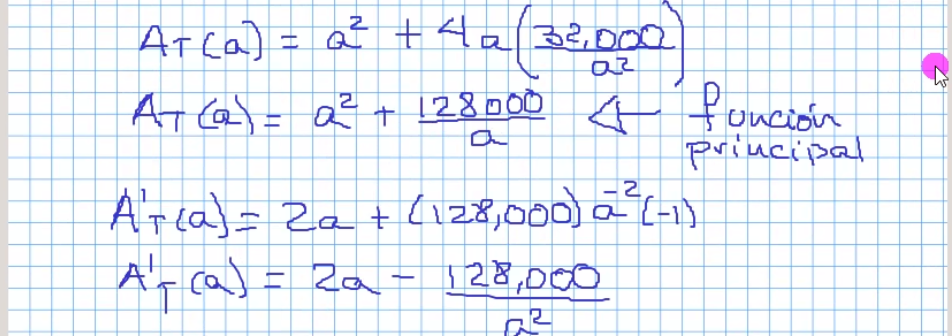 A_T(a) = a² + 4a(32,000/a²)
A_T(a) = a² + 128000/a ← función principal
A'_T(a) = 2a + (128,000)a⁻²(-1)
A'_T(a) = 2a - 128,000/a²